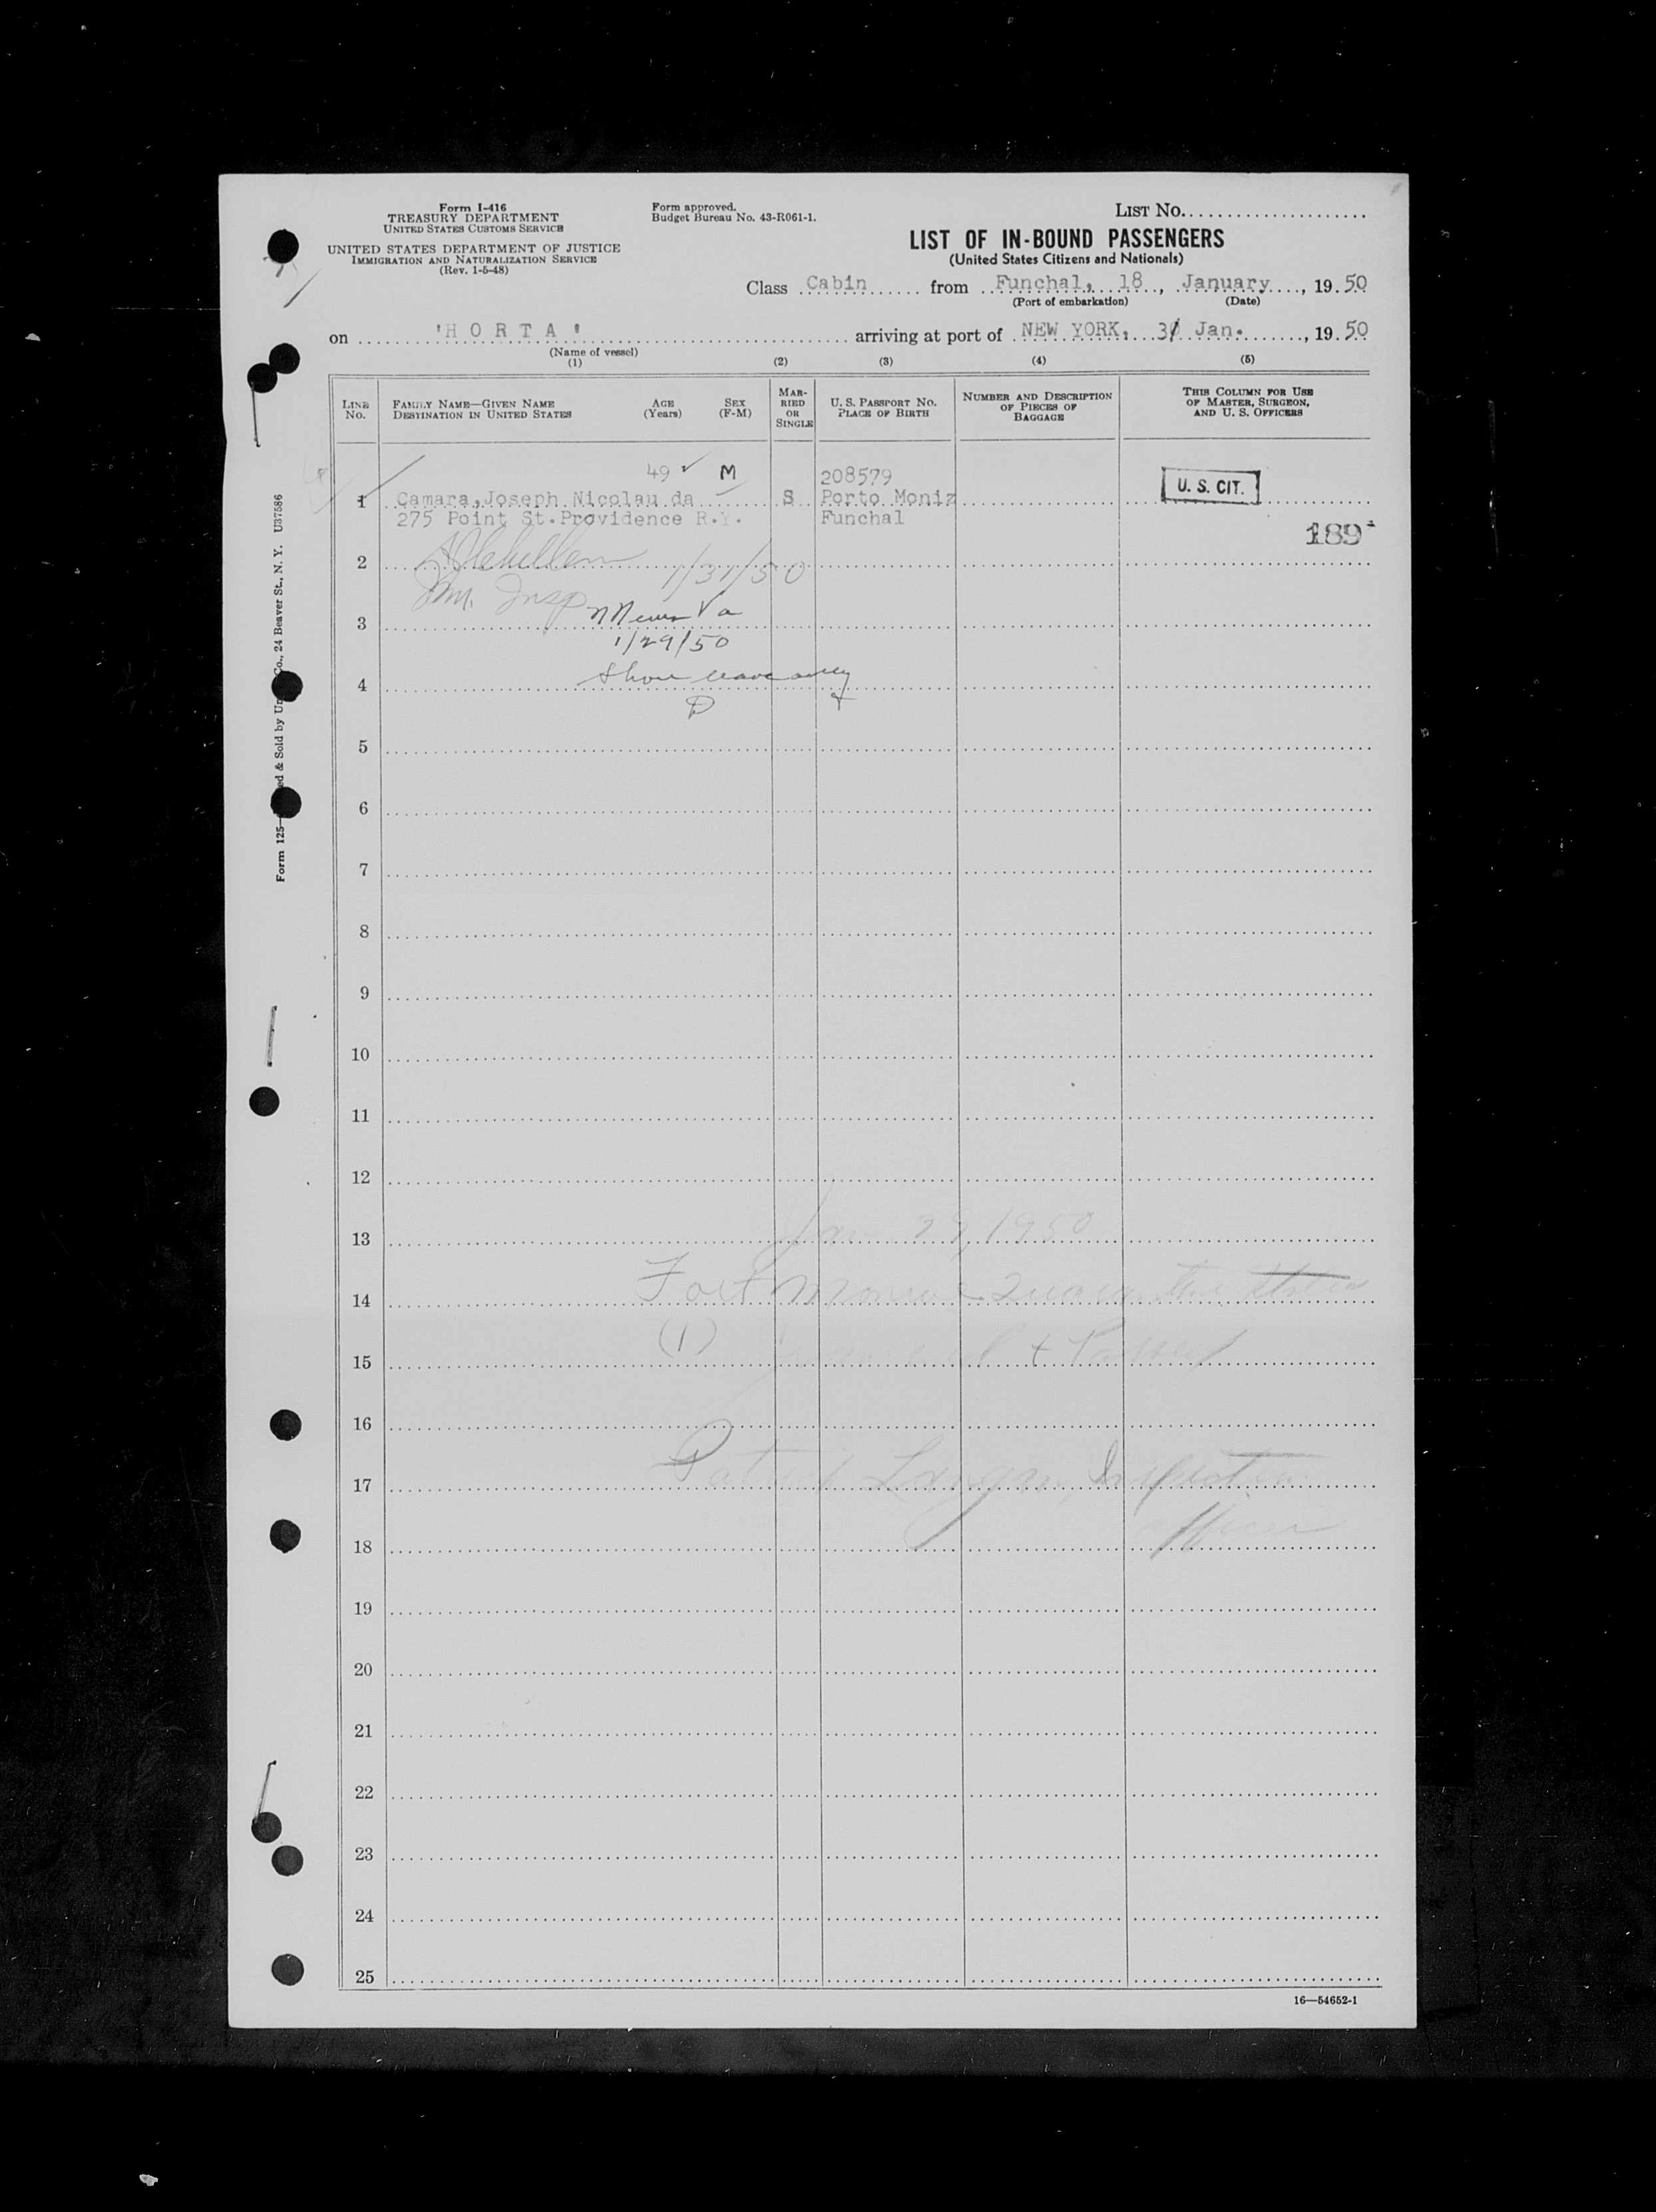 Form I-416
TREASURY DEPARTMENT
UNITED STATES CUSTOMS SERVICE
UNITED STATES DEPARTMENT OF JUSTICE
IMMIGRATION AND NATURALIZATION SERVICE
(Rev. 1-5-48)
Form approved.
Budget Bureau No. 43-R061-1.
LIST No.
LIST OF IN-BOUND PASSENGERS
(United States Citizens and Nationals)
Class Cabin from Funchal, 18, January, 1950
(Port of embarkation) (Date)
on 'H O R T A' arriving at port of NEW YORK, 31 Jan., 1950
(Name of vessel)
(1) (2) (3) (4) (5)
LINE No.
FAMILY NAME—GIVEN NAME
DESTINATION IN UNITED STATES
AGE (Years)
SEX (F-M)
MARRIED OR SINGLE
U. S. PASSPORT No.
PLACE OF BIRTH
NUMBER AND DESCRIPTION OF PIECES OF BAGGAGE
THIS COLUMN FOR USE OF MASTER, SURGEON, AND U. S. OFFICERS
49 M 208579
1 Camara, Joseph Nicolau da S Porto Moniz U. S. CIT.
275 Point St. Providence R.I. Funchal
189
2 1/31/50
Imm. Insp
3 N News Va
1/29/50
4 Shore leave only
5
6
7
8
9
10
11
12
13 Jan 29, 1950
14 Fort Monroe Quarantine Station
15 (1) + Passed
16
17 Patrick Langan, Inspection
18 officer
19
20
21
22
23
24
25
16—54652-1
Form 125— ed & Sold by Co., 24 Beaver St., N. Y. U37586